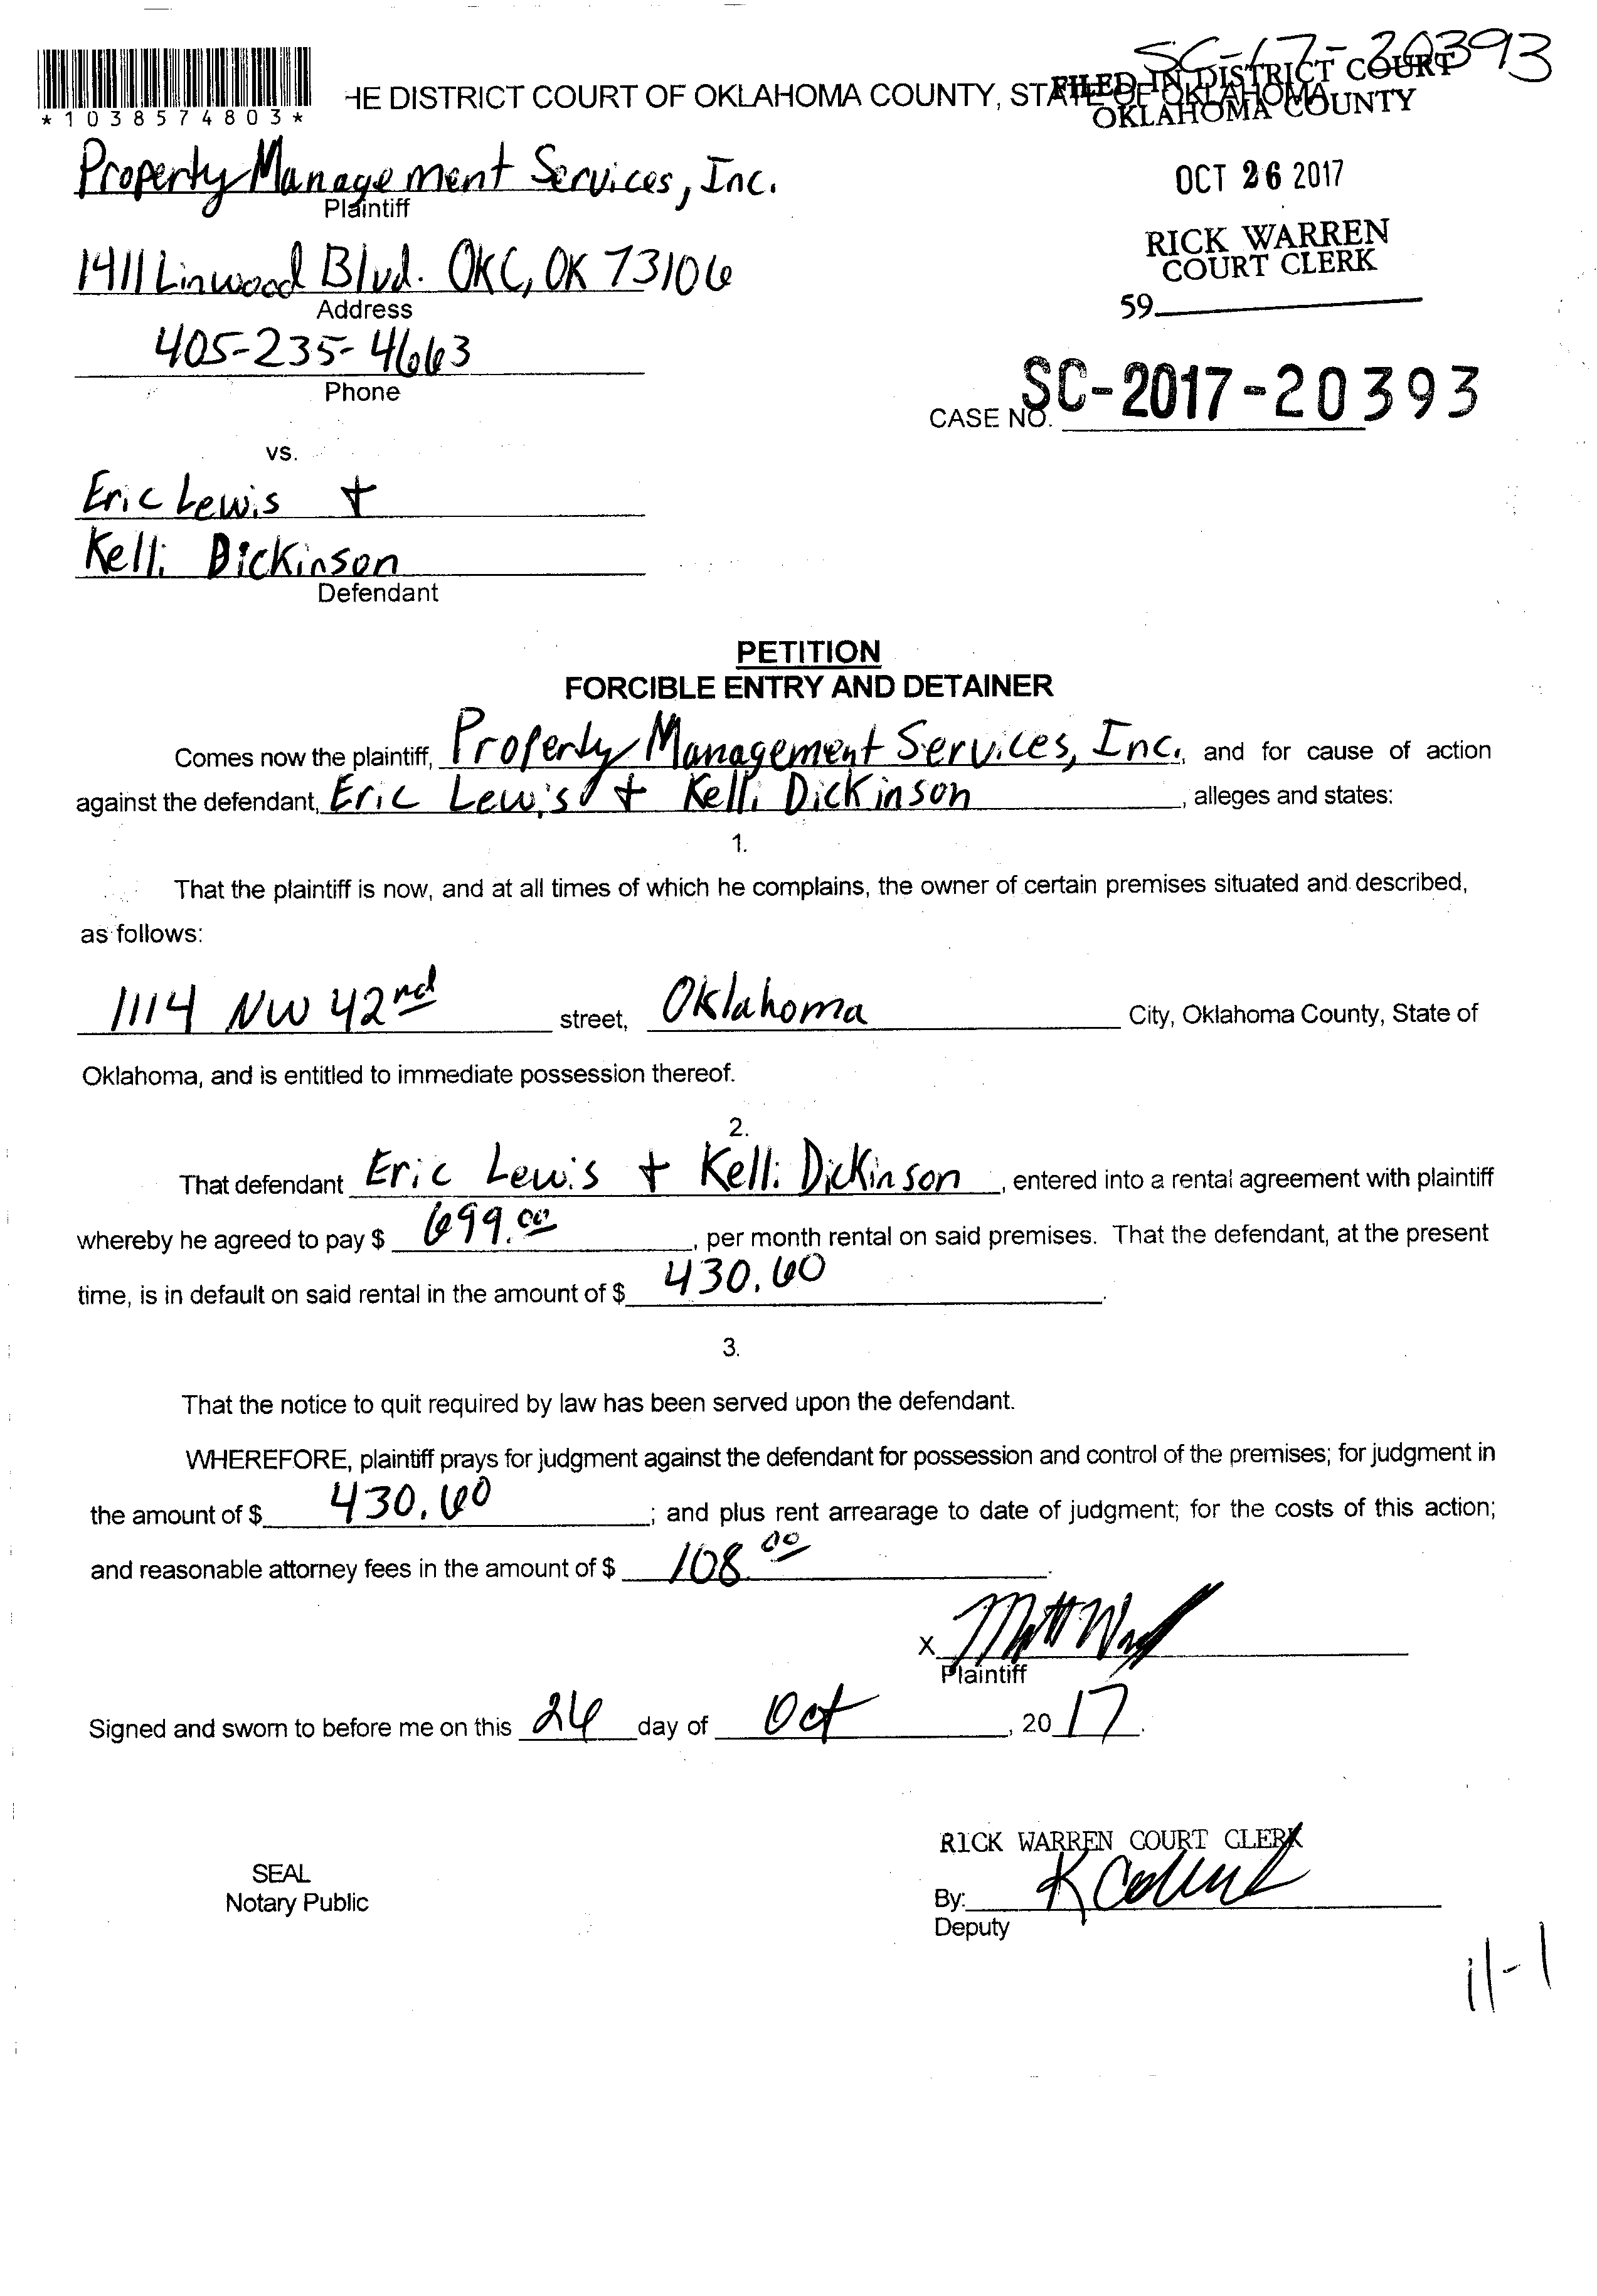 SC-17-20393
*1038574803*
HE DISTRICT COURT OF OKLAHOMA COUNTY, STATE OF OKLAHOMA
FILED IN DISTRICT COURT
OKLAHOMA COUNTY
Property Management Services, Inc.
Plaintiff
OCT 26 2017
RICK WARREN
COURT CLERK
59
1411 Linwood Blvd. OKC, OK 73106
Address
405-235-4663
Phone
CASE NO. SC-2017-20393
vs.
Eric Lewis +
Kelli Dickinson
Defendant
PETITION
FORCIBLE ENTRY AND DETAINER
Comes now the plaintiff, Property Management Services, Inc., and for cause of action
against the defendant, Eric Lewis + Kelli Dickinson, alleges and states:
1.
That the plaintiff is now, and at all times of which he complains, the owner of certain premises situated and described,
as follows:
1114 NW 42nd street, Oklahoma City, Oklahoma County, State of
Oklahoma, and is entitled to immediate possession thereof.
2.
That defendant Eric Lewis + Kelli Dickinson, entered into a rental agreement with plaintiff
whereby he agreed to pay $ 699.00, per month rental on said premises. That the defendant, at the present
time, is in default on said rental in the amount of $ 430.60.
3.
That the notice to quit required by law has been served upon the defendant.
WHEREFORE, plaintiff prays for judgment against the defendant for possession and control of the premises; for judgment in
the amount of $ 430.60; and plus rent arrearage to date of judgment; for the costs of this action;
and reasonable attorney fees in the amount of $ 108.00.
X
Plaintiff
Signed and sworn to before me on this 26 day of Oct, 2017.
RICK WARREN COURT CLERK
SEAL
Notary Public
By:
Deputy
11-1